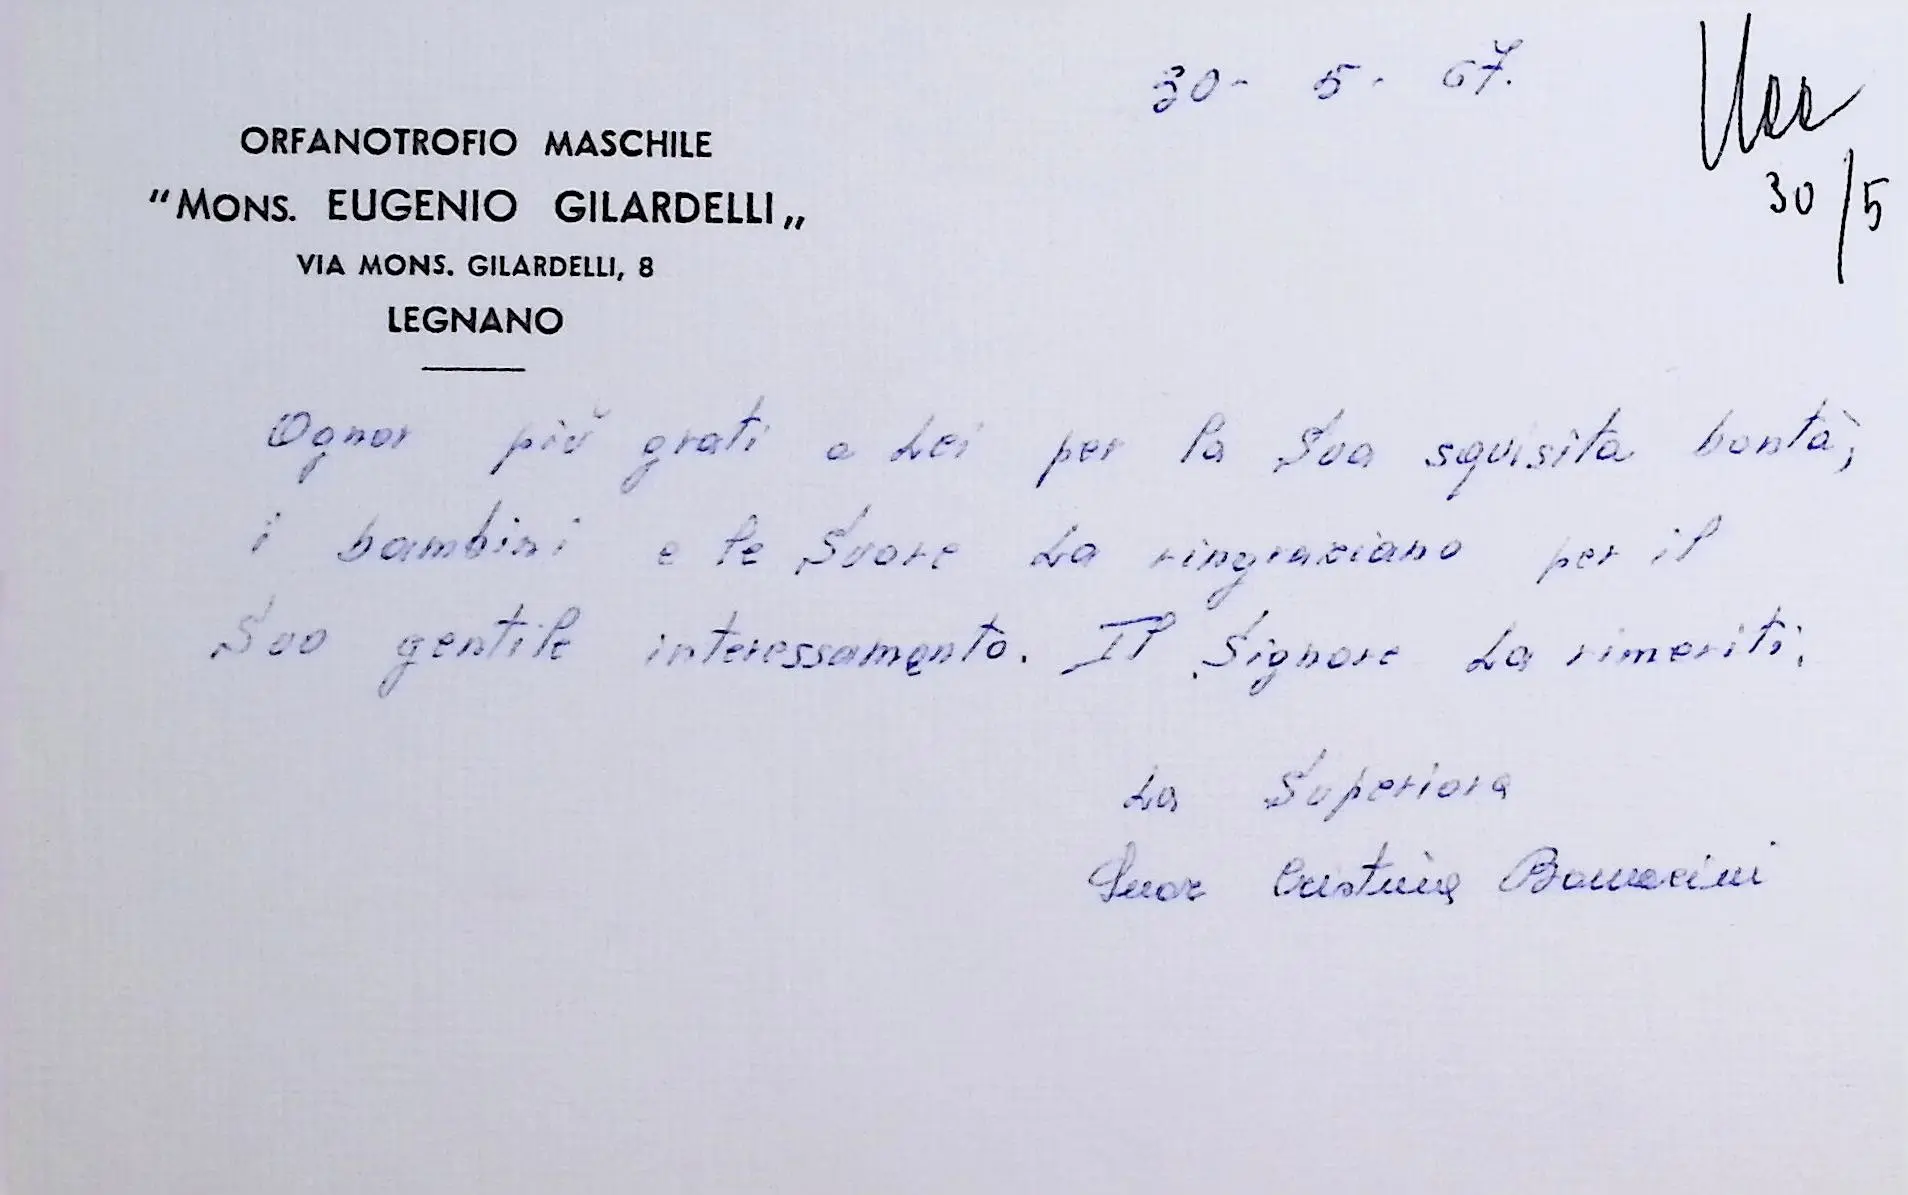 ORFANOTROFIO MASCHILE
"MONS. EUGENIO GILARDELLI„
VIA MONS. GILARDELLI, 8
LEGNANO
30 - 5 - 67.
30/5
Ognor più grati a Lei per la Sua squisita bontà,
i bambini e le Suore La ringraziano per il
Suo gentile interessamento. Il Signore La rimeriti.
La Superiora
Suor Cristina